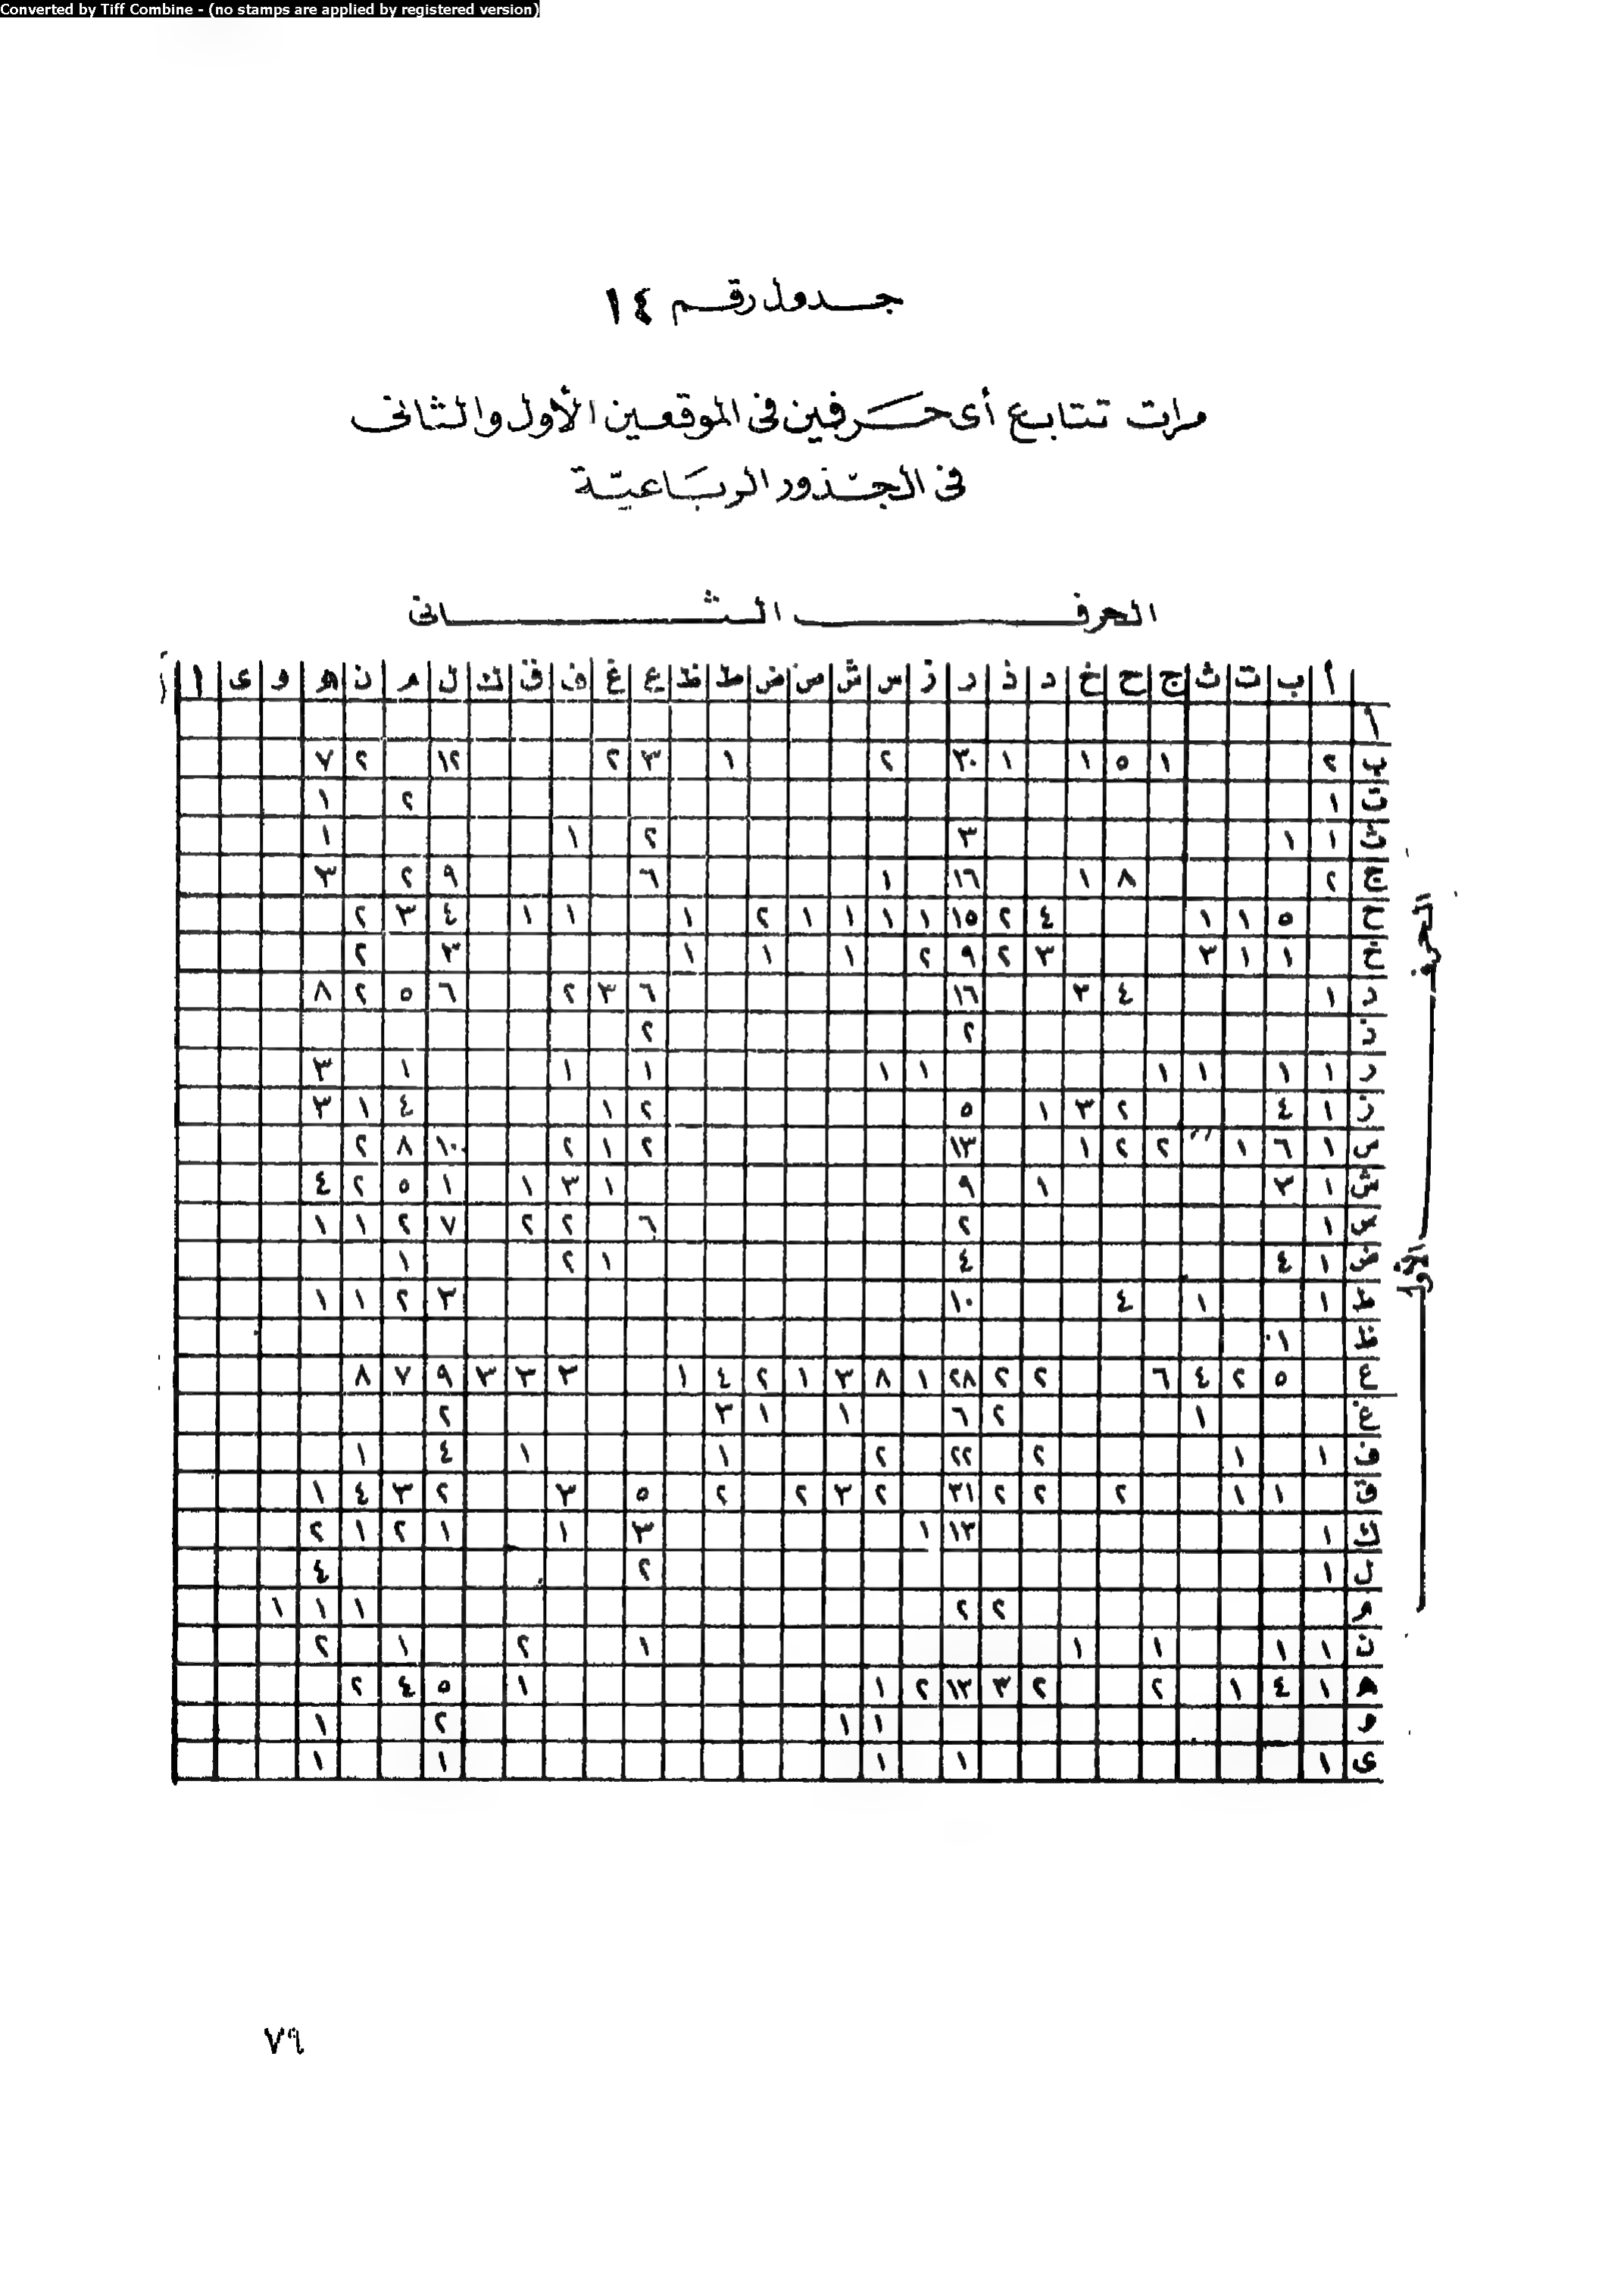 Converted by Tiff Combine - (no stamps are applied by registered version)
جدول رقم ١٤
مرات تتابع أى حرفين فى الموقعين الأول والثانى
فى الجذور الرباعية
الحرف الثانى
أ ب ت ث ج ح خ د ذ ر ز س ش ص ض ط ظ ع غ ف ق ك ل م ن ه و ى ا
أ
ب ٢ ١ ٥ ١ ١ ٣٠ ٢ ١ ٣ ٢ ١٢ ٢ ٧
ت ١ ٢ ١
ث ١ ١ ٣ ٢ ١ ١
ج ٢ ٨ ١ ١٦ ١ ٦ ٩ ٢ ٣
ح ٥ ١ ١ ٤ ٢ ١٥ ١ ١ ١ ١ ٢ ١ ١ ١ ٤ ٣ ٢
خ ١ ١ ٣ ٣ ٢ ٩ ٢ ١ ١ ١ ٣ ٢
د ١ ٤ ٣ ١٦ ٦ ٣ ٢ ٦ ٥ ٢ ٨
ذ ٢ ٢
ر ١ ١ ١ ١ ١ ١ ١ ١ ١ ٣
ز ١ ٤ ٢ ٣ ١ ٥ ٢ ١ ٤ ١ ٣
س ١ ٦ ١ ٢ ٢ ١ ١٣ ٢ ١ ٢ ١٠ ٨ ٢
ش ١ ٣ ١ ٩ ١ ٣ ١ ١ ٥ ٢ ٤
ص ١ ٢ ٦ ٢ ٢ ٧ ٢ ١ ١
ض ١ ٤ ٤ ١ ٢ ١
ط ١ ١ ٤ ١٠ ٣ ٢ ١ ١
ظ ١
ع ٥ ٢ ٤ ٦ ٢ ٢ ٢٨ ١ ٨ ٣ ١ ٢ ٤ ١ ٣ ٣ ٣ ٩ ٧ ٨
غ ١ ٢ ٦ ١ ١ ٣ ٢
ف ١ ١ ٢ ٢٢ ٢ ١ ١ ٤ ١
ق ١ ١ ٢ ٢ ٢ ٣١ ٢ ٣ ٢ ٢ ٥ ٣ ٢ ٣ ٤ ١
ك ١ ١٣ ١ ٣ ١ ١ ٢ ١ ٢
ل ١ ٢ ٤
م ٢ ٢ ١ ١ ١
ن ١ ١ ١ ١ ١ ٢ ١ ٢
ه ١ ٤ ١ ٢ ٢ ٣ ١٣ ٢ ١ ١ ٥ ٤ ٢
و ١ ١ ٢ ١
ى ١ ١ ١ ١ ١
الحرف الأول
٧٩